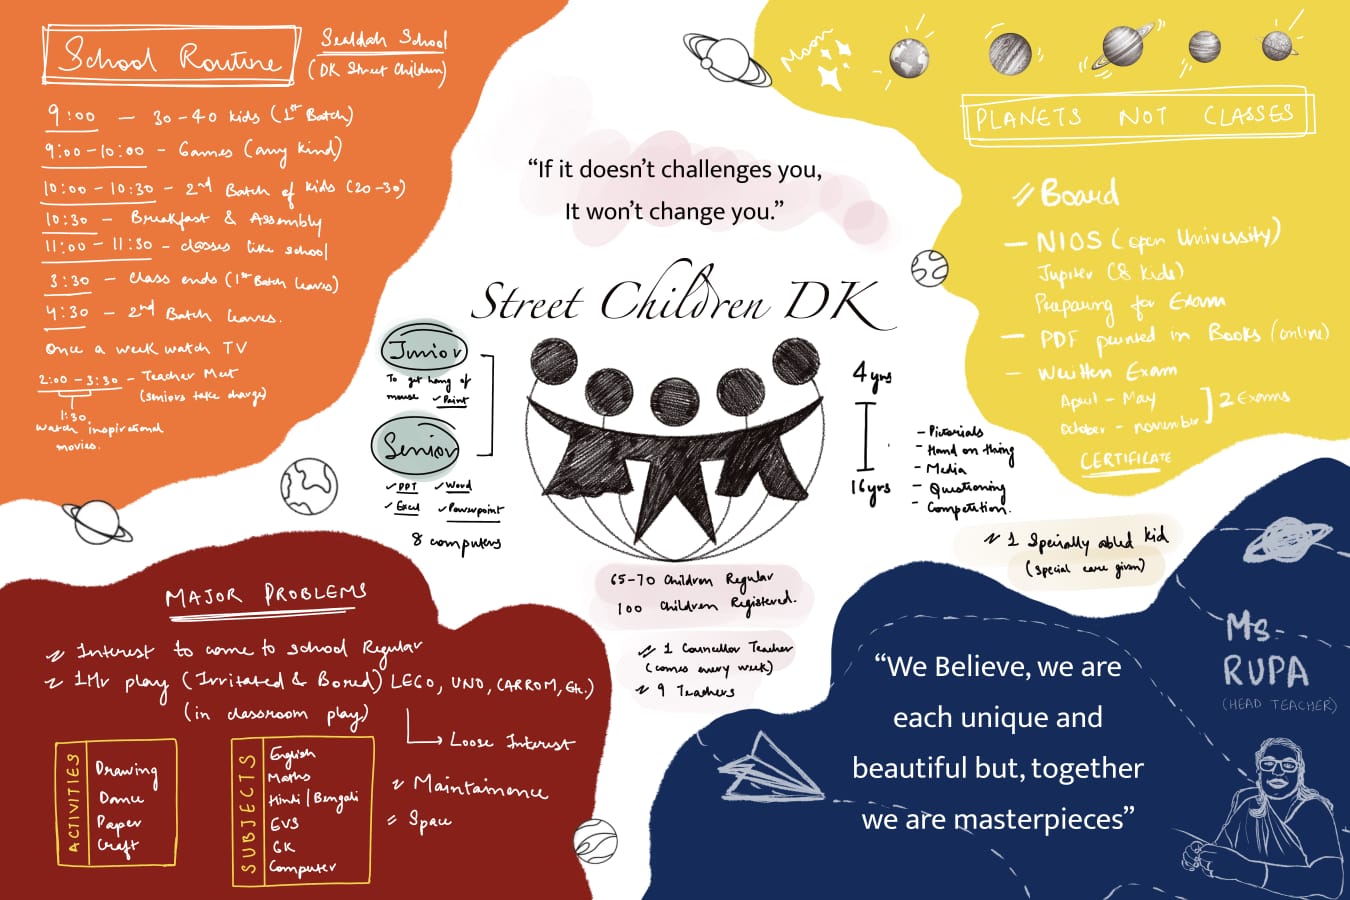 School Routine
Sealdah School
(DK Street Children)
9:00 – 30-40 kids (1st Batch)
9:00-10:00 - Games (any kind)
10:00 - 10:30 - 2nd Batch of kids (20-30)
10:30 - Breakfast & Assembly
11:00 - 11:30 - classes like school
3:30 - class ends (1st Batch leaves)
4:30 - 2nd Batch leaves.
Once a week watch TV
2:00 - 3:30 - Teacher Meet
(seniors take charge)
1:30
watch inspirational
movies.
Moon
PLANETS NOT CLASSES
Board
– NIOS (open University)
Jupiter (8 kids)
Preparing for Exam
– PDF printed in Books (online)
– Written Exam
April - May
October - november
2 Exams
CERTIFICATE
“If it doesn’t challenges you,
It won’t change you.”
Street Children DK
Junior
To get hang of
mouse ✓ Paint
Senior
✓ PPT ✓ Word
✓ Excel ✓ Powerpoint
8 computers
4 yrs
16 yrs
- Pictorials
- Hand on thing
- Media
- Questioning
- Competition.
1 Specially abled kid
(special care given)
65-70 Children Regular
100 Children Registered.
1 Councellor Teacher
(comes every week)
9 Teachers
MAJOR PROBLEMS
Interest to come to school Regular
1Hr play (Irritated & Bored) LEGO, UNO, CARROM, Etc.)
(in classroom play)
Loose Interest
Maintainence
Space
ACTIVITIES
Drawing
Dance
Paper
Craft
SUBJECTS
English
Maths
Hindi | Bengali
EVS
GK
Computer
“We Believe, we are
each unique and
beautiful but, together
we are masterpieces”
Ms.
RUPA
(HEAD TEACHER)